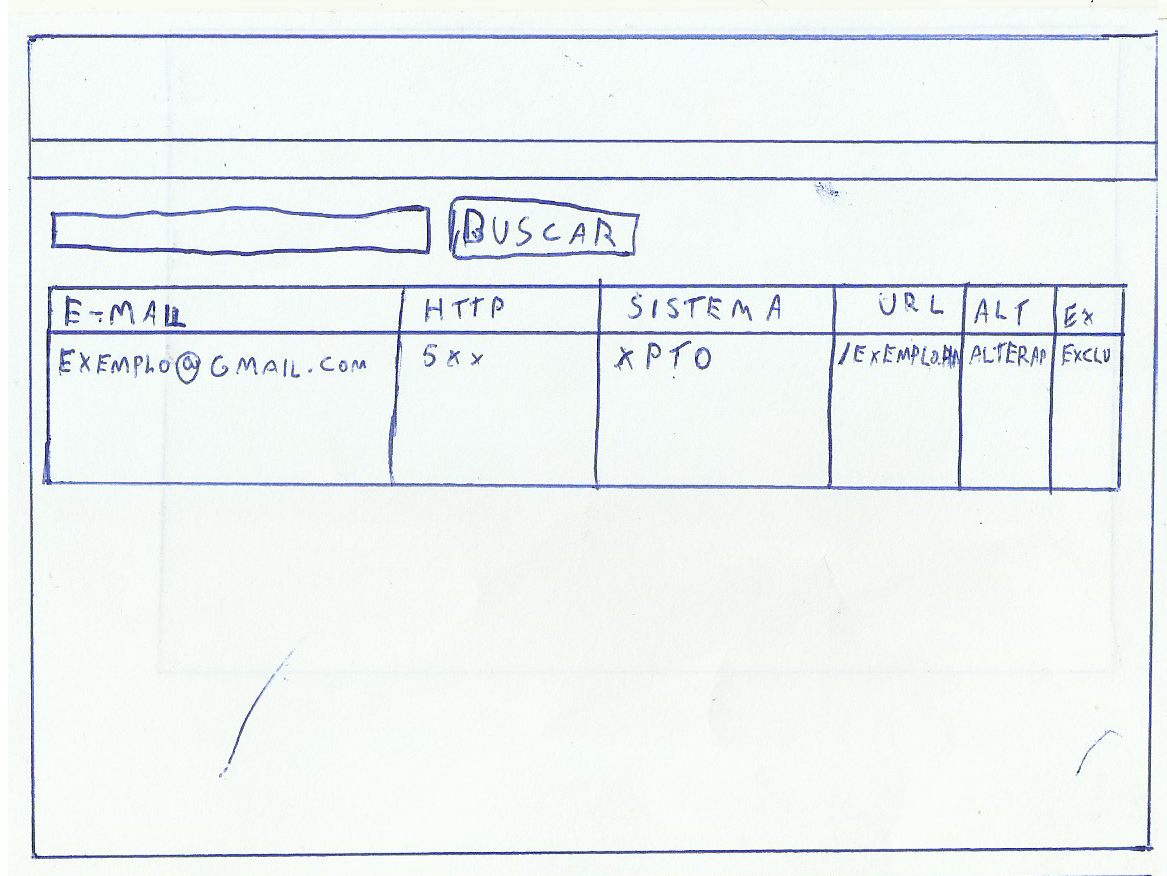 BUSCAR
E-MAIL HTTP SISTEMA URL ALT EX
EXEMPLO@GMAIL.COM 5xx XPTO ALTERAR EXCLU